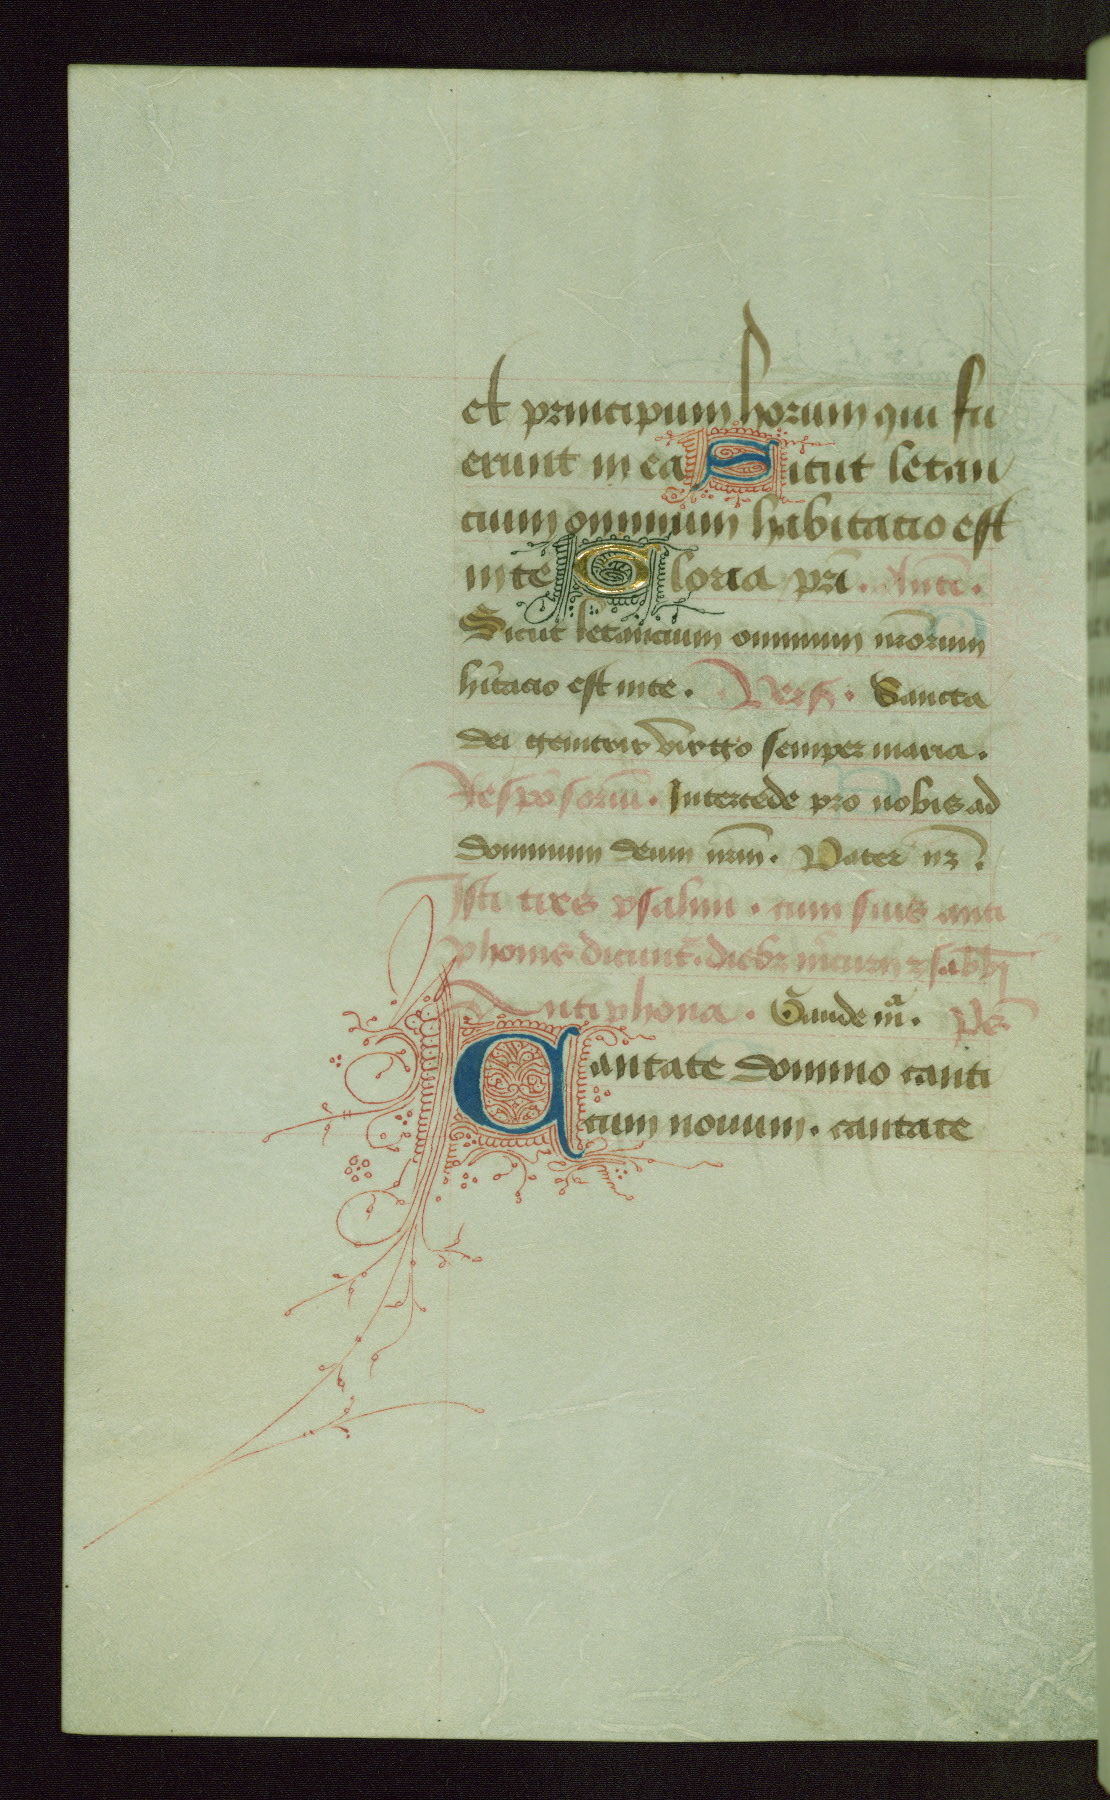 et principum horum qui fu
erunt in ea Sicut letan
cium omnium habitacio est
in te Gloria pr̄i. Antē.
Sicut letancium omnium n̄r̄orum
hītacio est in te. Vers. Sancta
dei genitrix virgo semper maria.
Respōsoriū. Intercede pro nobis ad
dominum deum nr̄m. Pater nr̄.
Isti tres psalmi. cum suis anti
phonis dicunt᷑. diebꝫ m̄curij ⁊ sabbī
Antiphona. Gaude mᷓ. Ps̄
Cantate domino canti
cum nouum. cantate